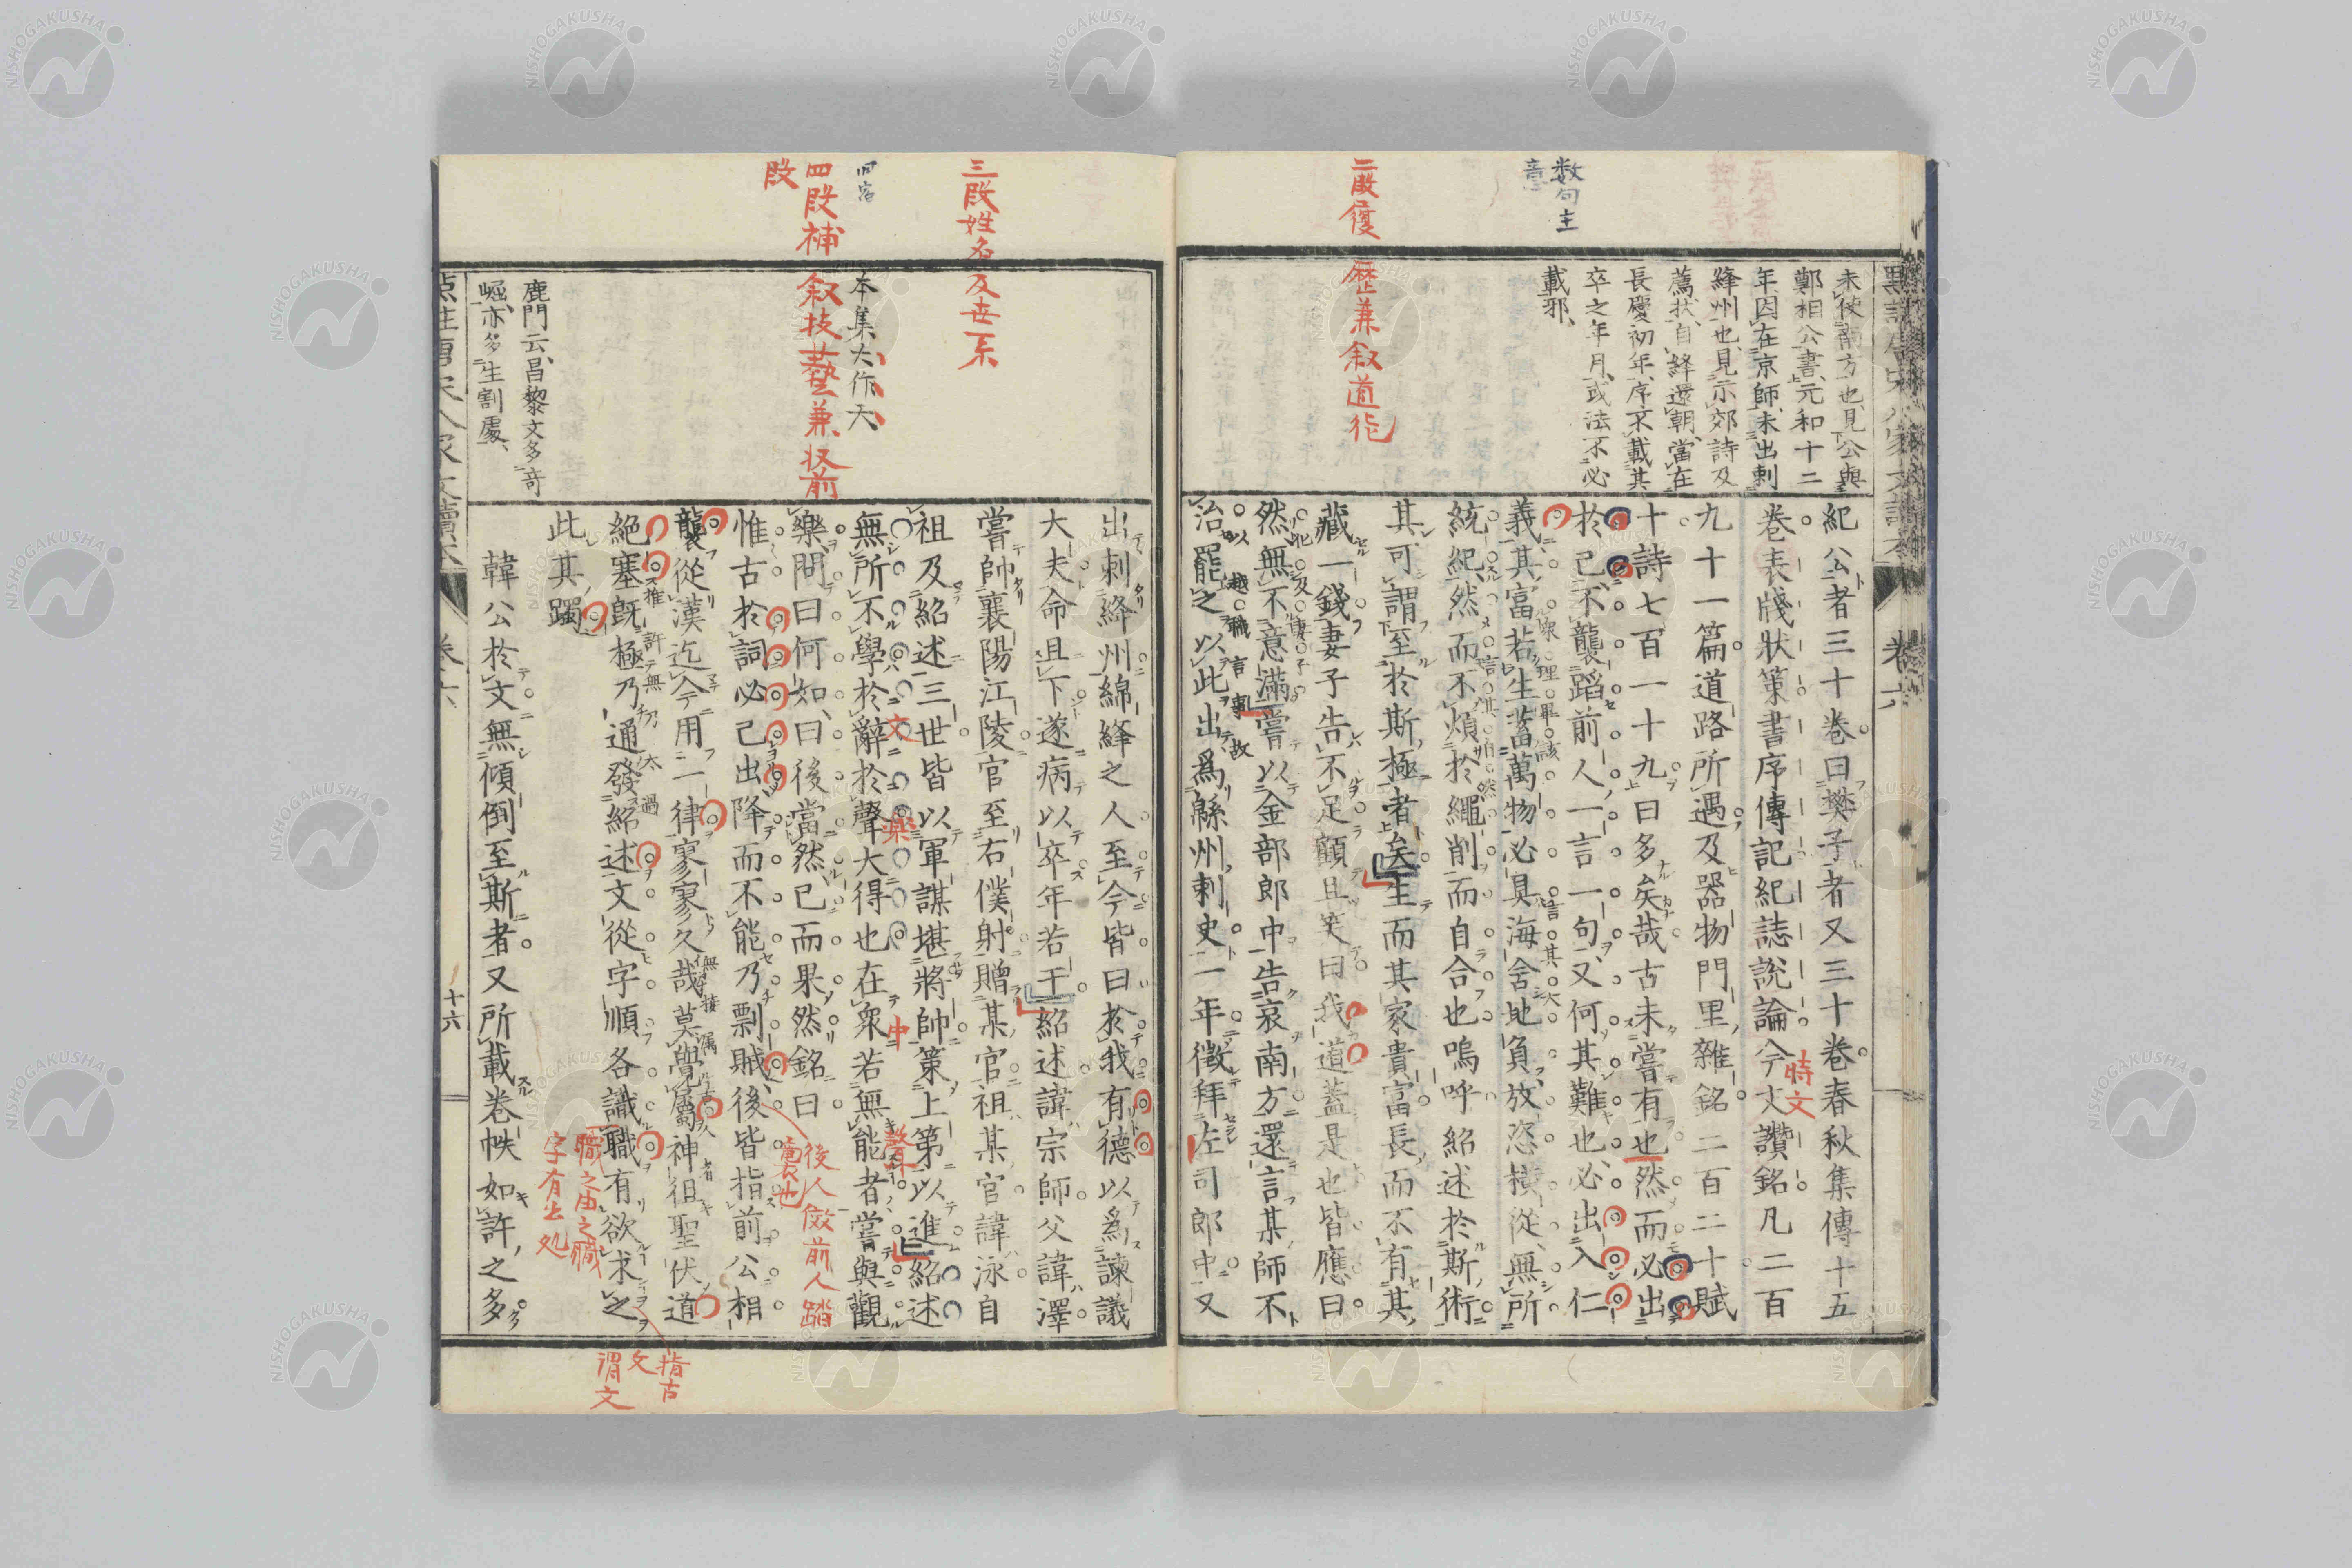 数句主
意
二段優
歴兼叙道作
未使南方也、見公與
鄭相公書、元和十二
年因在京師、未出刺
絳州也、見示郊詩及
薦状、自絳還朝、當在
長慶初年、序不載其
卒之年月、或法不必
載邪、
卷六
紀公者三十卷曰樊子者又三十卷春秋集傳十五
卷表牋狀策書序傳記紀誌說論今文讚銘凡二百
九十一篇道路所遇及器物門里雜銘二百二十賦
十詩七百一十九曰多矣哉古未嘗有也然而必出
於己不襲蹈前人一言一句又何其難也必出入仁
義其富若生蓄萬物必具海含地負放恣橫從無所
統紀然而不煩於繩削而自合也嗚呼紹述於斯術
其可謂至於斯極者矣生而其家貴富長而不有其
藏一錢妻子告不足顧且笑曰我道蓋是也皆應曰
然無不意滿嘗以金部郎中告哀南方還言某師不
治罷之以此出爲緜州刺史一年徵拜左司郎中又
時文
三段姓名及世系
四段補叙技藝兼收前
段
本集大作天、
出刺絳州綿絳之人至今皆曰於我有德以爲諫議
大夫命且下遂病以卒年若干紹述諱宗師父諱澤
嘗帥襄陽江陵官至右僕射贈某官祖某官諱泳自
祖及紹述三世皆以軍謀堪將帥策上第以進紹述
無所不學於辭於聲大得也在衆若無能者嘗與觀
樂問曰何如曰後當然已而果然銘曰
惟古於詞必己出降而不能乃剽賊後皆指前公相
襲從漢迄今用一律寥寥久哉莫覺屬神徂聖伏道
絕塞既極乃通發紹述文從字順各識職有欲求之
此其躅
韓公於文無傾倒至斯者又所載卷帙如許之多
文
樂
中
聲
後人傚前人踏
襲也
職之由之職
字有出処
指古
文
謂文
鹿門云、昌黎文多奇
崛、亦多生割處、
卷六
十六
NISHOGAKUSHA